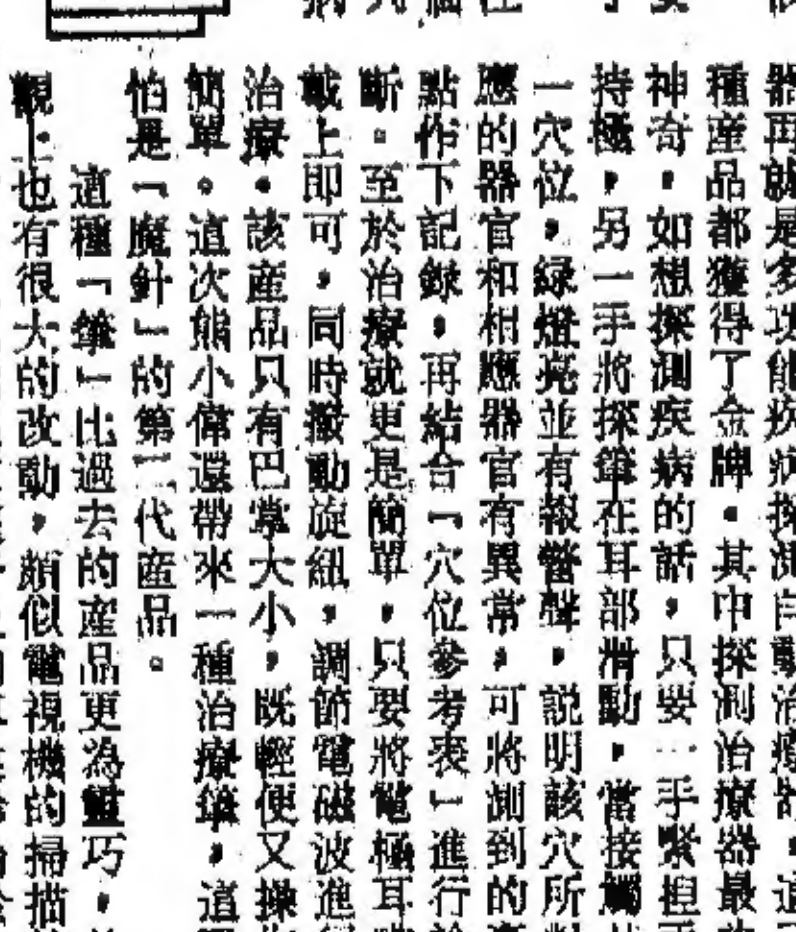 器再就是多功能疾病探測自動治療器。這
種産品都獲得了金牌。其中探測治療器最
神奇，如想探測疾病的話，只要一手緊捏
持極，另一手將探筆在耳部滑動，當接觸
一穴位，綠燈亮並有報警聲，説明該穴所
應的器官和相應器官有異常，可將測到的
點作下記錄，再結合「穴位參考表」進行
斷。至於治療就更是簡單，只要將電極耳
戴上即可，同時撥動旋紐，調節電磁波進
治療。該産品只有巴掌大小，既輕便又操
簡單。這次熊小偉還帶來一種治療筆，這
怕是「魔針」的第二代産品。
這種「筆」比過去的産品更為靈巧，
觀上也有很大的改動，頗似電視機的掃描